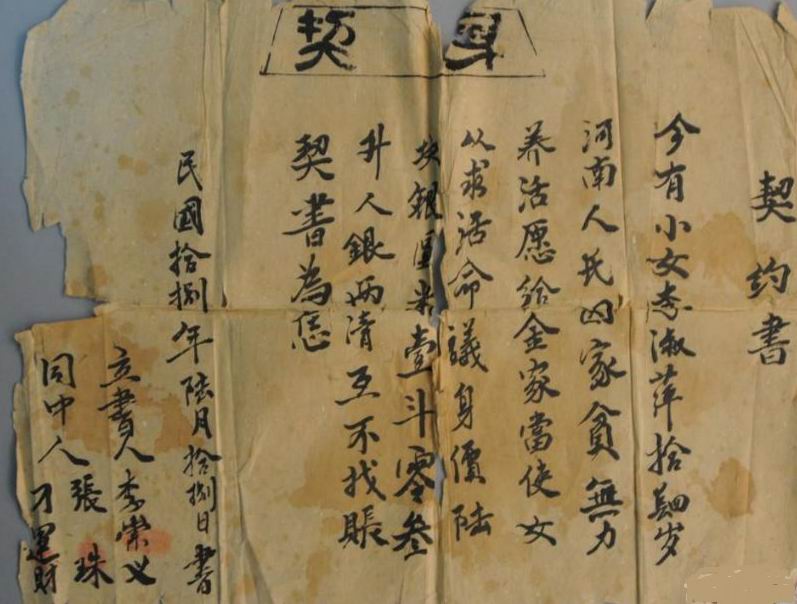 身契
契约書
今有小女李淑萍拾岁
河南人氏因家貧無力
养活愿给金家當使女
从求活命議身價陸
块銀圓米壹斗零叁
升人銀两清互不找賬
契書為恁
民國拾捌年陸月拾捌日書
立書人李崇义
同中人張珠
刁運財